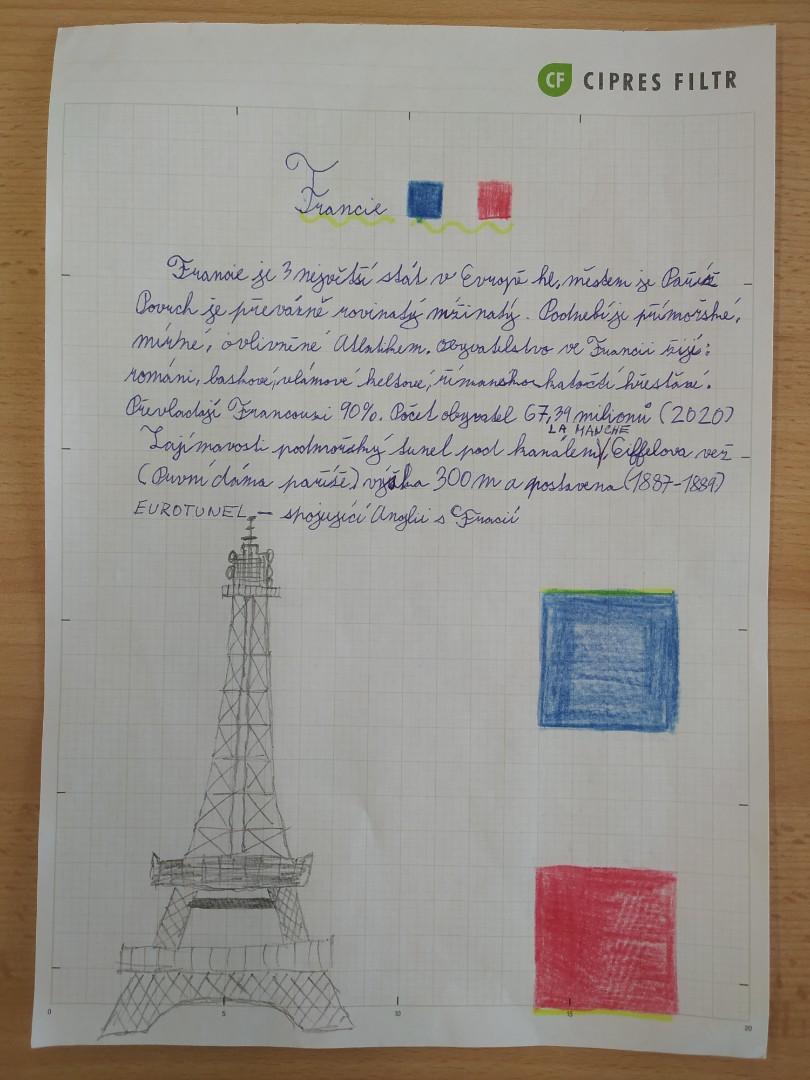 CF CIPRES FILTR
Francie
Francie je 3 největší stát v Evropě hl. městem je Paříž
Povrch je převážně rovinatý mžinatý. Podnebí je přímořské,
mírné, ovlivněné Atlatikem. obyvatelstvo ve Francii žijí:
románi, baskové, vlámové keltové, římansko katočtí křesťané.
Převladají Francouzi 90%. Počet obyvatel 67,39 milionů (2020)
LA MANCHE
Zajímavosti podmořský tunel pod kanálem, Eiffelova vež
(První dáma paříže) výška 300 m a postavena (1887-1889)
EUROTUNEL - spojující Anglii s Fracií
0 5 10 15 20